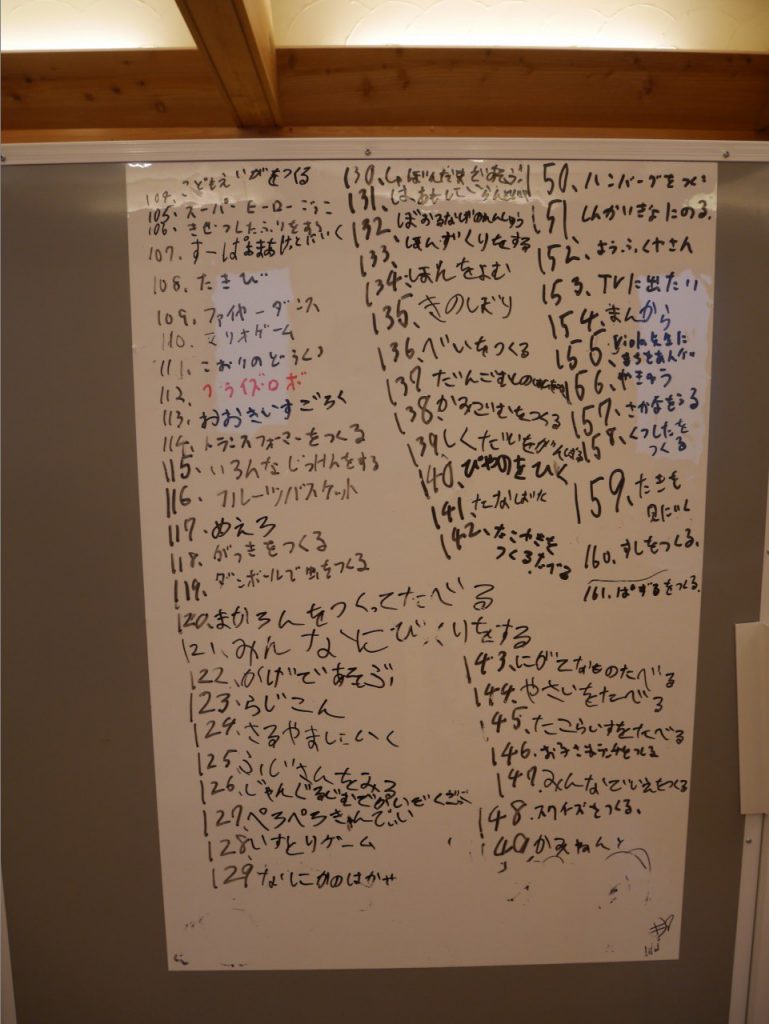 104. こどもえいがをつくる
105. スーパーヒーローごっこ
106. きぜつしたふりをする
107. すーぱ
108. たきび
109. ファイヤーダンス
110. マリオゲーム
111. こおりのどうくつ
112. クライズロボ
113. おおきいすごろく
114. トランスフォーマーをつくる
115. いろんなじっけんをする
116. フルーツバスケット
117. めえろ
118. がっきをつくる
119. ダンボールで虫をつくる
120. まかろんをつくってたべる
121. みんなにびっくりをする
122. かげであそぶ
123. らじこん
124. さるやまにいく
125. ふじさんをみる
126. じゃんぐるじむで
127. ぺろぺろきゃんでぃい
128. いすとりゲーム
129. なにかのはかせ
130. しゃぼんだま
131.
132. ぼおるなげのれんしゅう
133. ほんずくりをする
134. ほんをよむ
135. きのしおり
136. べいをつくる
137. だんごむしの
138. かるごむをつくる
139. しくだいをがんばる
140. ぴやのをひく
141. たなばた
142. たこやきを
つくるたべる
143. にがてなものたべる
144. やさいをたべる
145. たこらいすをたべる
146. お子さまランチをつくる
147. みんなでいえをつくる
148. スクイズをつくる。
149
150. ハンバーグをつくる
151. しんかいぎょにのる。
152. ようふくやさん
153. TVに出たい
154. まんから
155. 先生に
156. やきゅう
157. さかなをうる
158. くつしたを
つくる
159. たきを
見にいく
160. すしをつくる。
161. ぱずるをつくる。